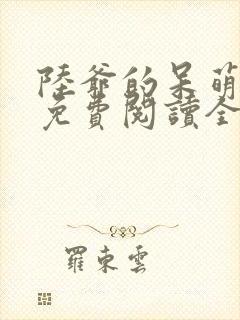 陸爺的呆萌
免費閱讀全
羅東雲